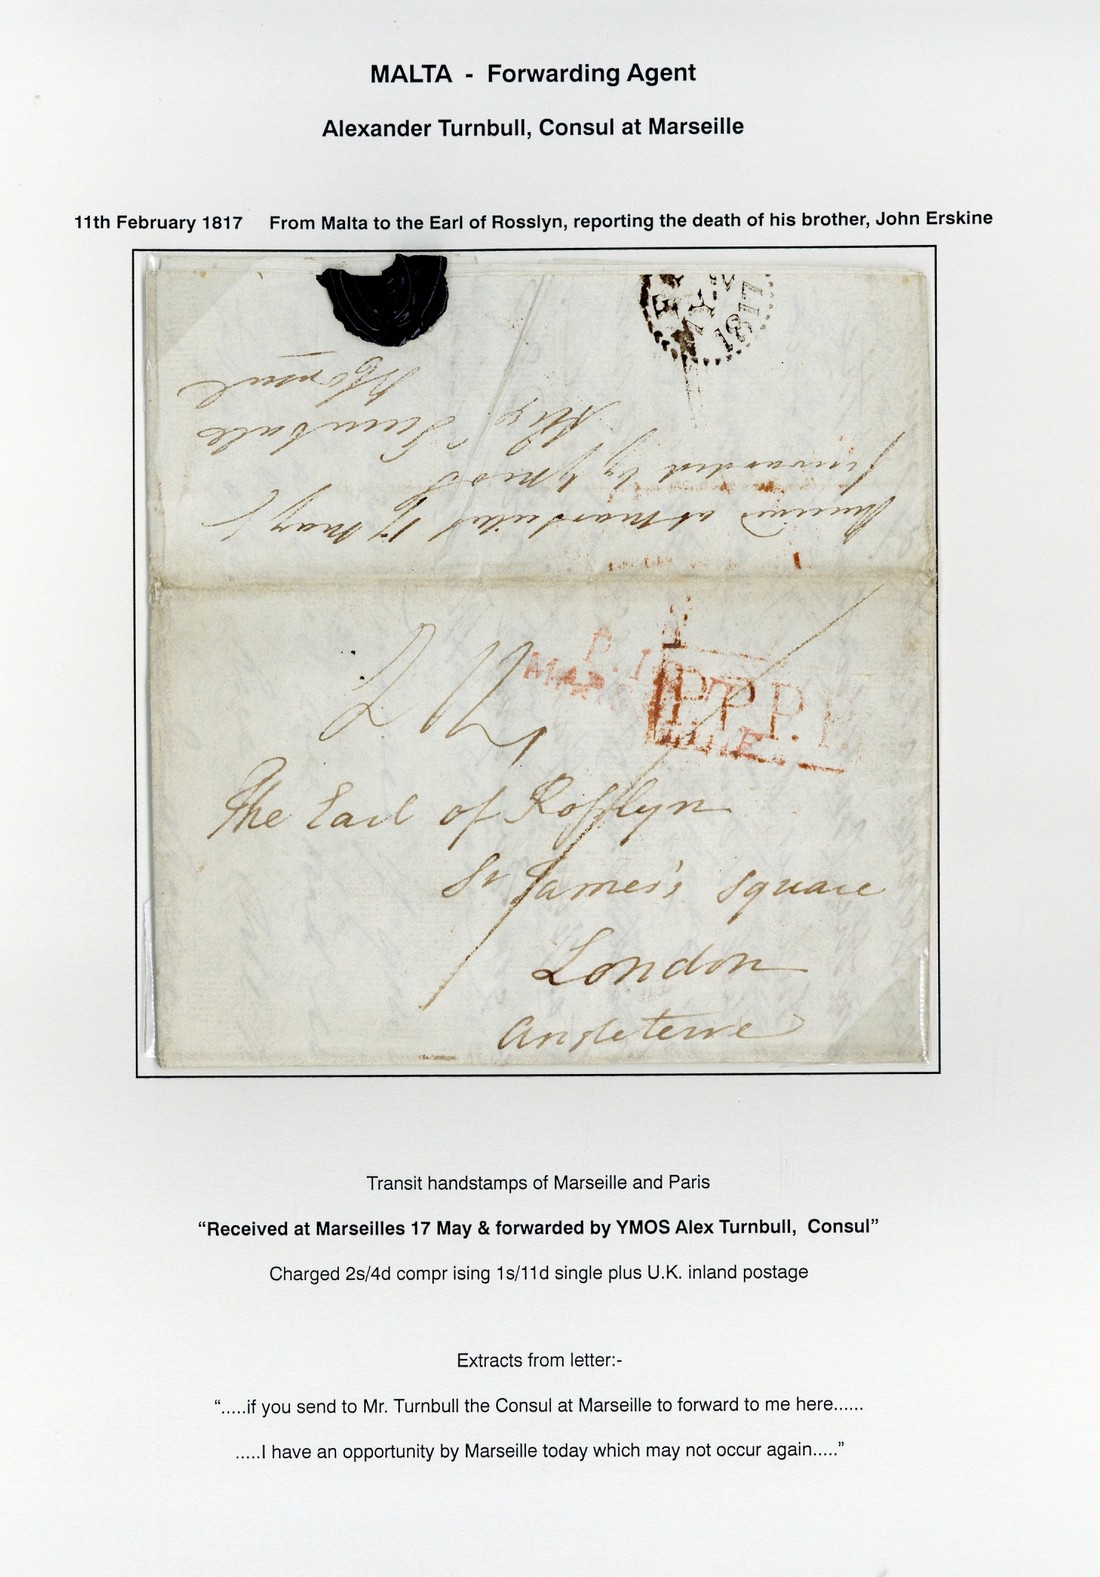 MALTA - Forwarding Agent
Alexander Turnbull, Consul at Marseille
11th February 1817 From Malta to the Earl of Rosslyn, reporting the death of his brother, John Erskine
1817
Consul
Alex Turnbull
forwarded by Ymos
Received at Marseilles 17 May &
P.P.P.P.
MARSEILLE
2/4
The Earl of Rosslyn
St James's Square
London
Angleterre
Transit handstamps of Marseille and Paris
“Received at Marseilles 17 May & forwarded by YMOS Alex Turnbull, Consul”
Charged 2s/4d compr ising 1s/11d single plus U.K. inland postage
Extracts from letter:-
“.....if you send to Mr. Turnbull the Consul at Marseille to forward to me here......
.....I have an opportunity by Marseille today which may not occur again.....”